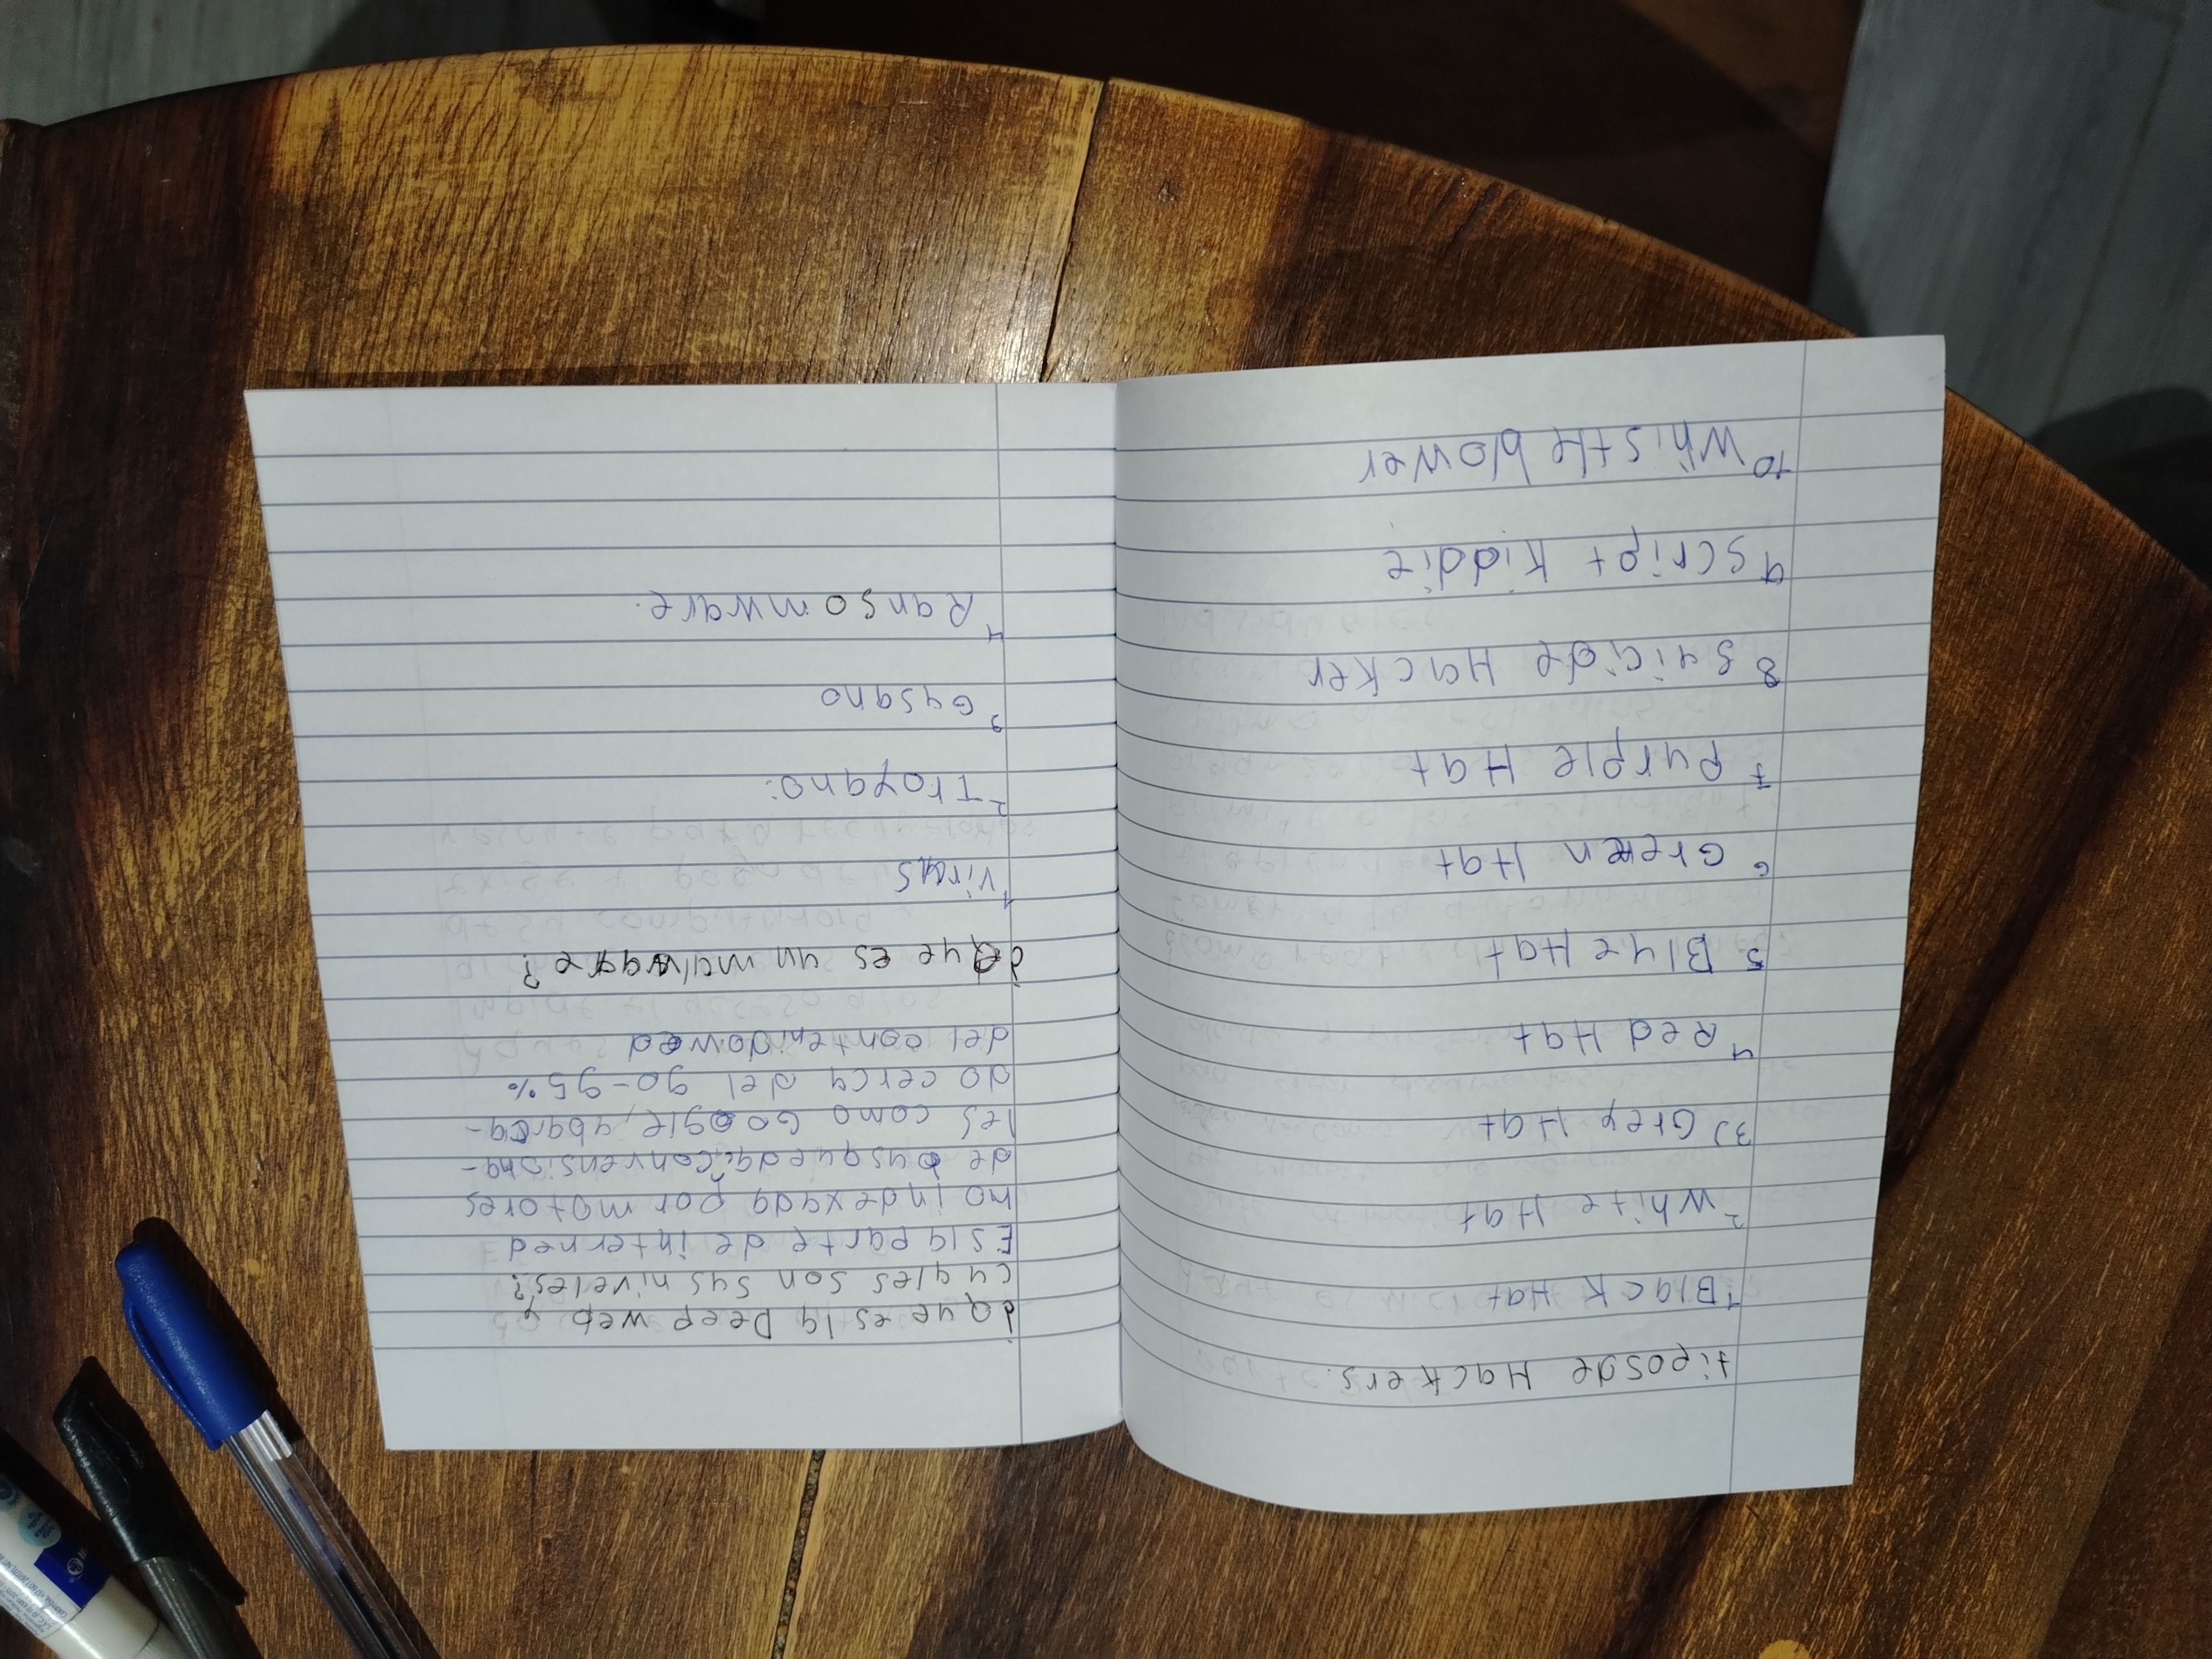 tipos de Hackers.
1 Black Hat
2 White Hat
3) Grey Hat
4 Red Hat
5. Blue Hat
6 Green Hat
7 Purple Hat
8 Suicide Hacker
9 Script Kiddie
10 Whistleblower
¿Que es la Deep web y
cuales son sus niveles?
Es la parte de interned
no indexada por motores
de busqueda, convensiona-
les como Google, abarca-
do cerca del 90-95%
del contenidowed
¿Que es un malware?
1 Virus
2 Troyano:
3 Gusano
4 Ransomware.